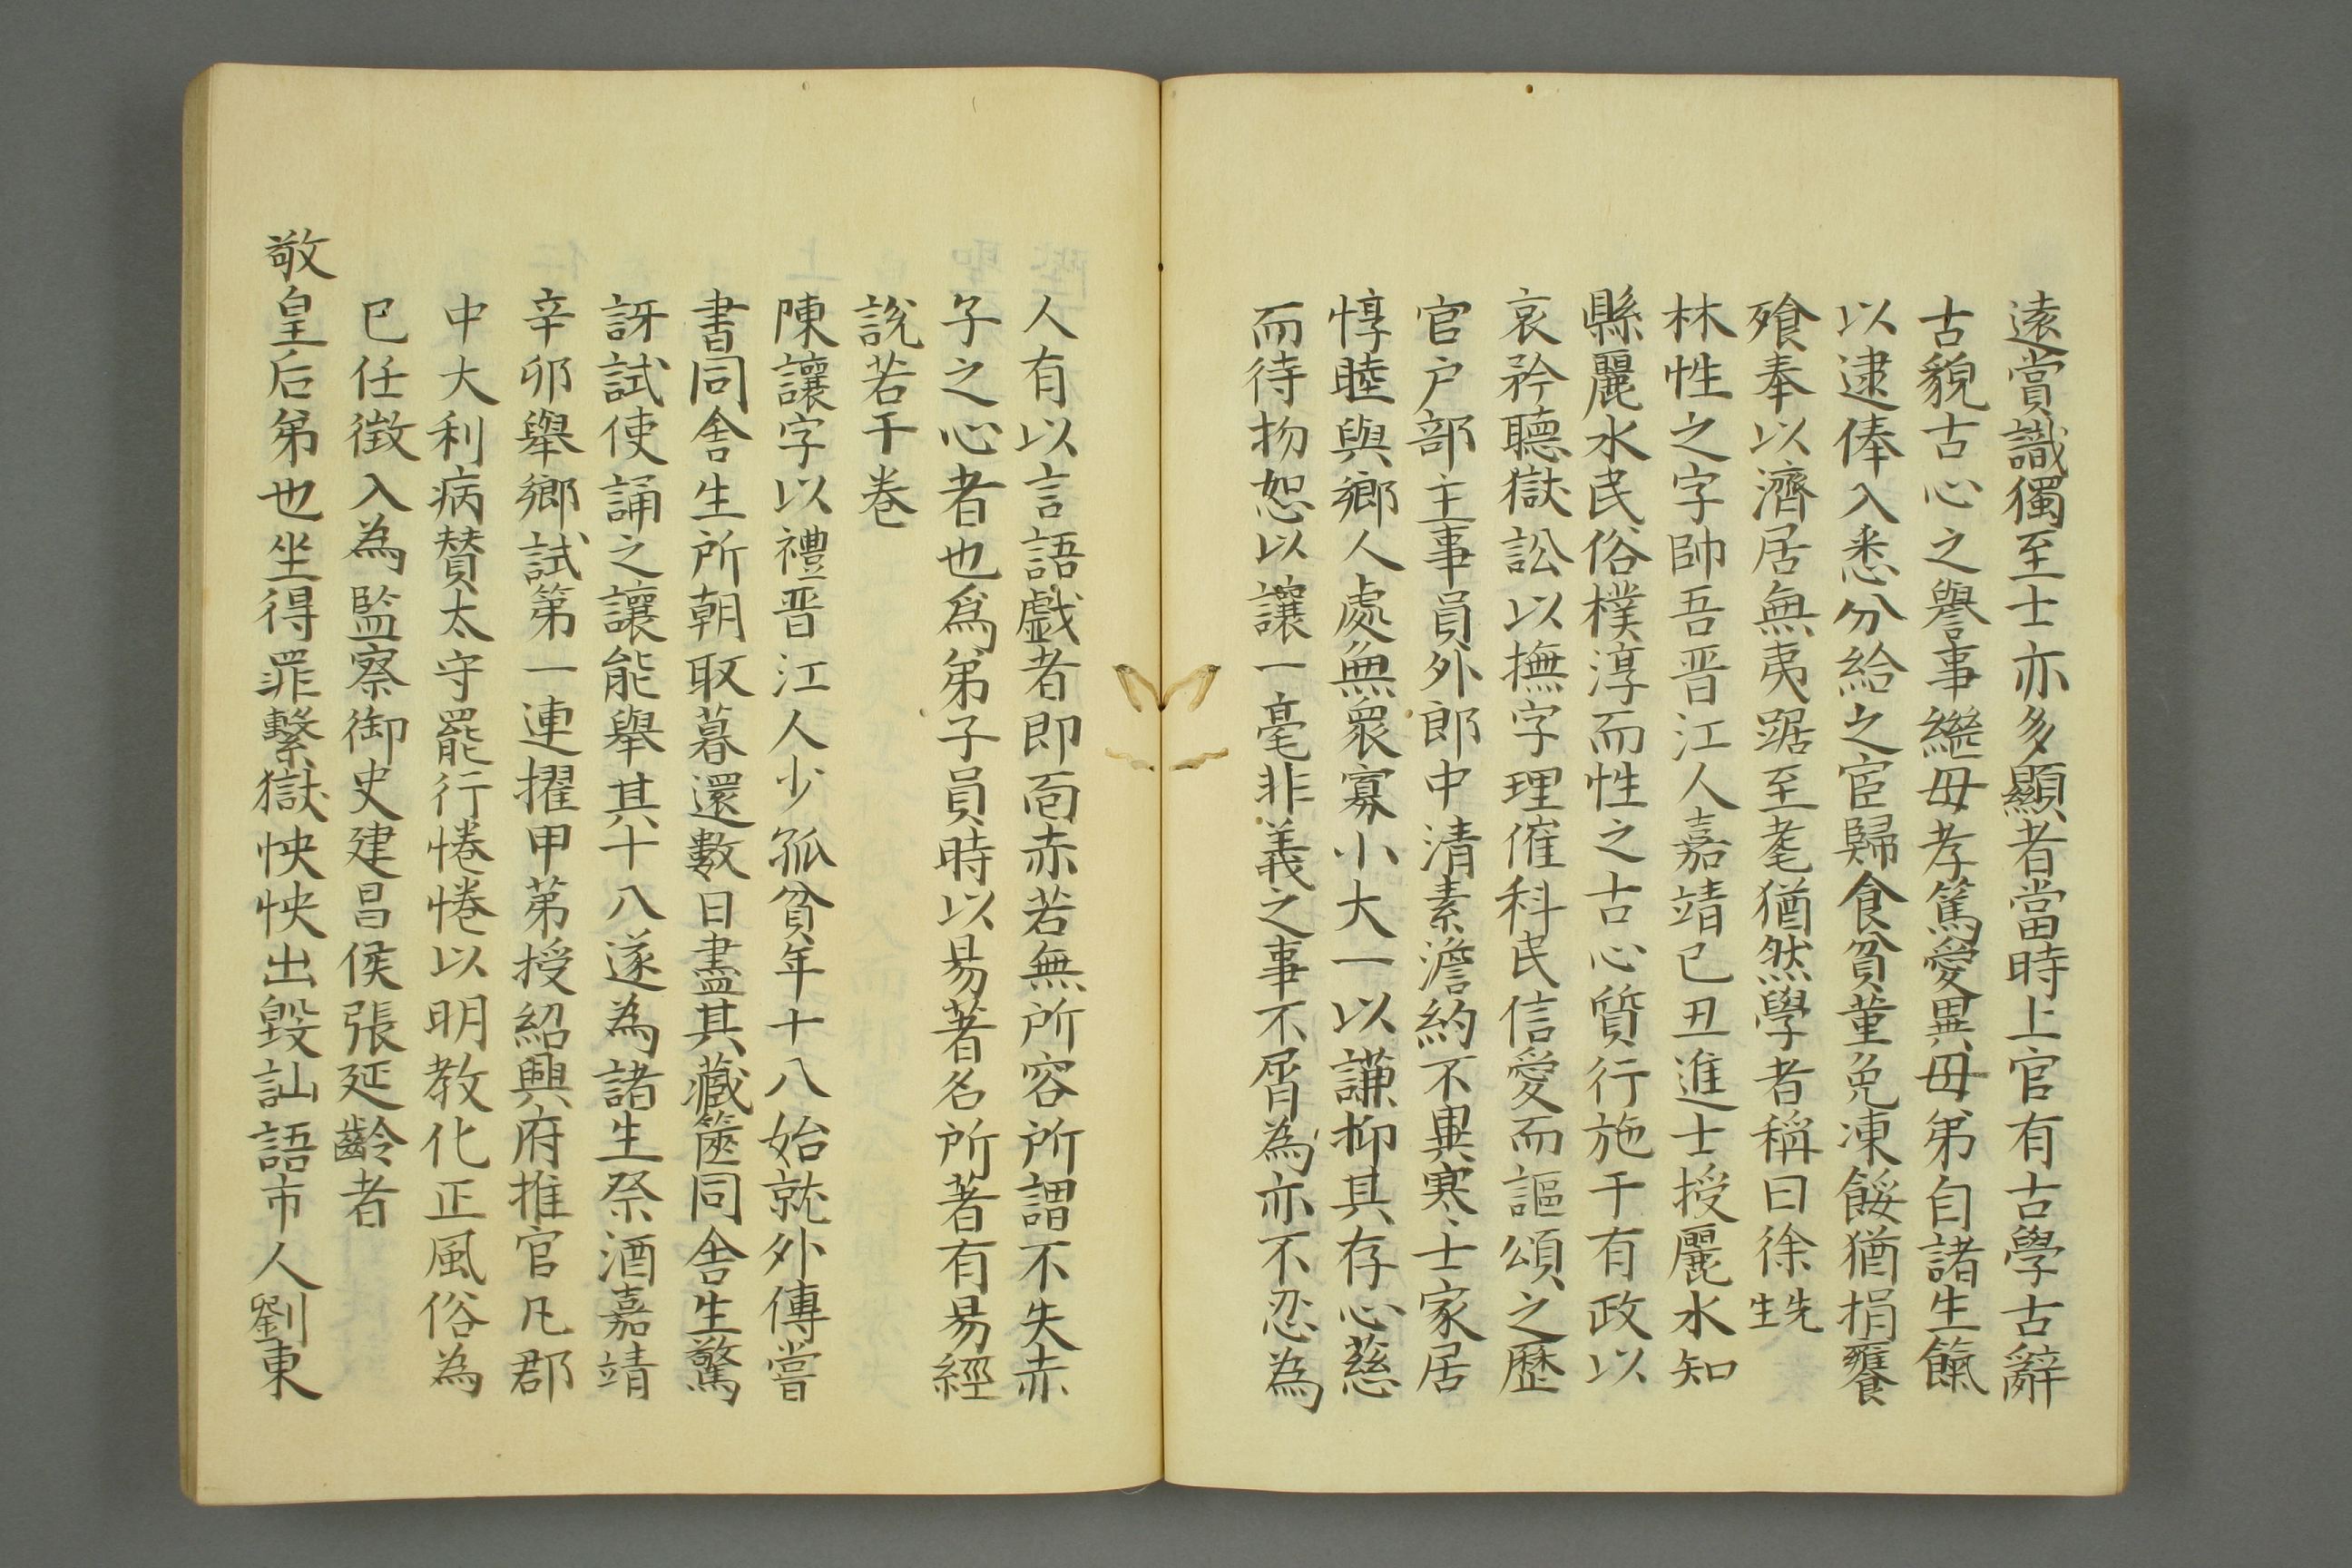 遠賞識獨至士亦多顯者當時上官有古學古辭
古貌古心之譽事繼母孝篤愛異母弟自諸生餼
以逮俸入悉分給之宦歸食貧堇免凍餒猶捐饔
飱奉以濟居無夷踞至耄猶然學者稱曰徐先生
林性之字帥吾晋江人嘉靖已丑進士授麗水知
縣麗水民俗樸淳而性之古心質行施于有政以
哀矜聽獄訟以撫字理催科民信愛而謳頌之歷
官户部主事員外郎中清素澹約不異寒士家居
惇睦與鄉人處無衆寡小大一以謙抑其存心慈
而待物恕以讓一毫非義之事不屑為亦不忍為
人有以言語戲者即面赤若無所容所謂不失赤
子之心者也爲弟子員時以易著名所著有易經
說若干卷
陳讓字以禮晋江人少孤貧年十八始就外傳嘗
書同舍生所朝取暮還數日盡其藏篋同舍生驚
訝試使誦之讓能舉其十八遂為諸生祭酒嘉靖
辛卯舉鄉試第一連擢甲第授紹興府推官凡郡
中大利病賛太守罷行惓惓以明教化正風俗為
已任徴入為監察御史建昌侯張延齡者
敬皇后弟也坐得罪繫獄怏怏出毀訕語市人劉東